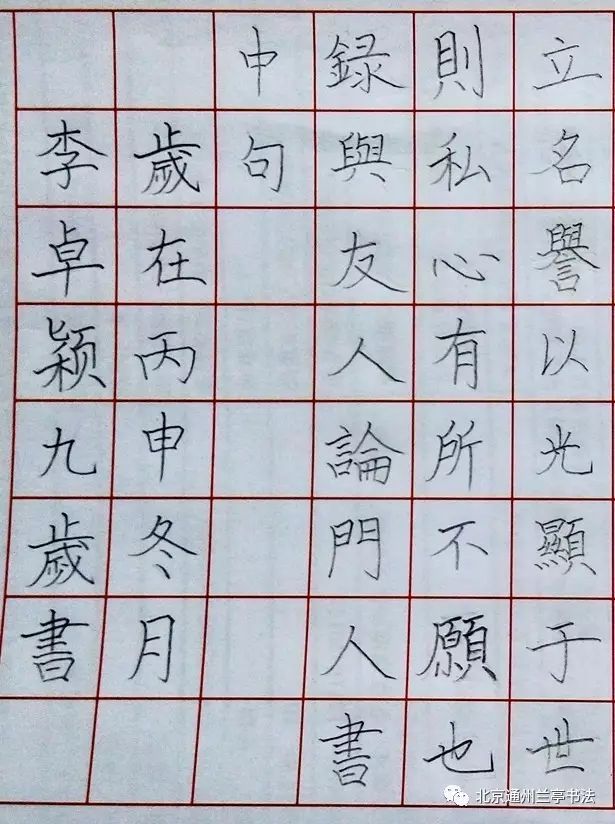 立名譽以光顯于世
則私心有所不願也
録與友人論門人書
中句
歲在丙申冬月
李卓颖九歲書
北京通州兰亭书法